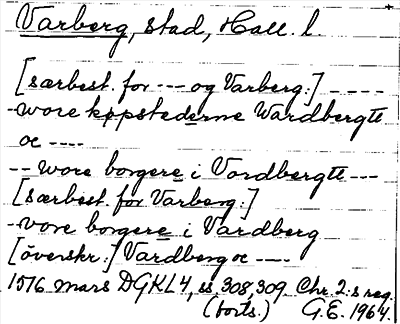 Varberg, stad, Hall. l.
[særbest. for --- og Varberg:] ----
-wore køpstederne Wardbergtt
oc ----
-- wore borgere i Vardbergtt ---
[særbest. for Varberg:]
-vore borgere i Vardberg
[överskr.:] Vardberg oc ----
1516 mars DGKL4, ss. 308, 309 Chr. 2:s reg.
(forts.) G.E. 1964.